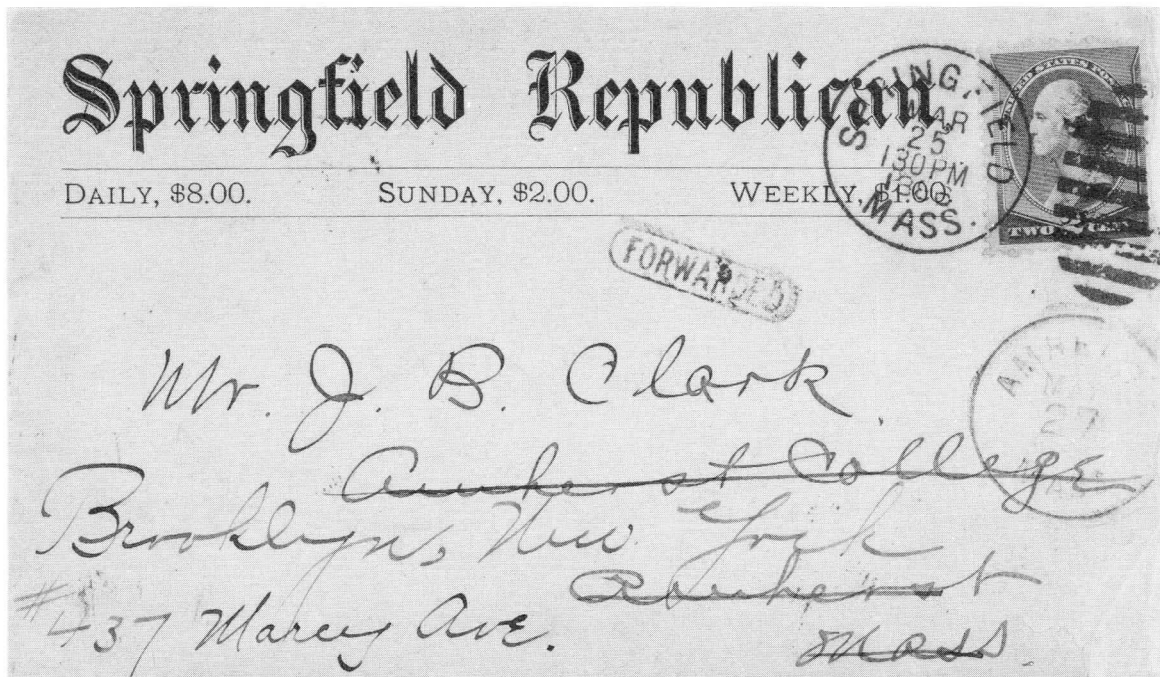 Springfield Republican.
DAILY, $8.00. SUNDAY, $2.00. WEEKLY, $1.00.
SPRINGFIELD
MAR
25
130PM
MASS.
UNITED STATES
TWO
FORWARDED
AMHE
27
Mr. J. B. Clark
Amherst College
Brooklyn, New York
Amherst
#437 Marcy Ave.
Mass.